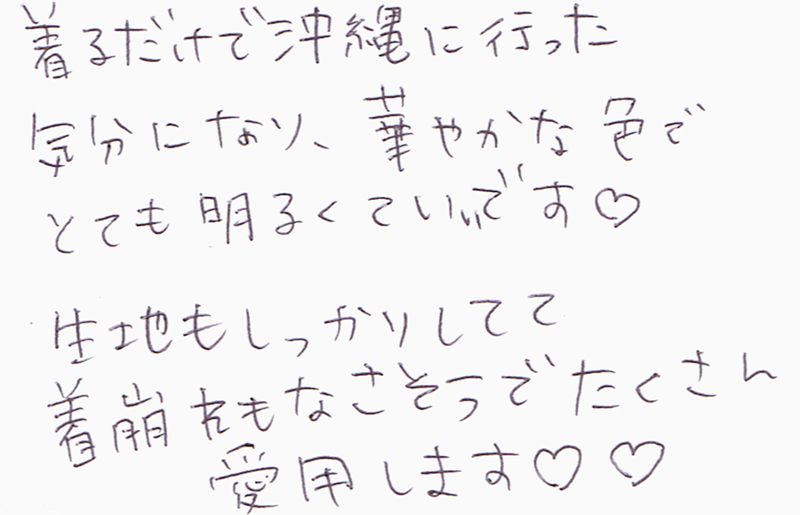 着るだけで沖縄に行った
気分になり、華やかな色で
とても明るくていいです♡
生地もしっかりしてて
着崩れもなさそうでたくさん
愛用します♡♡